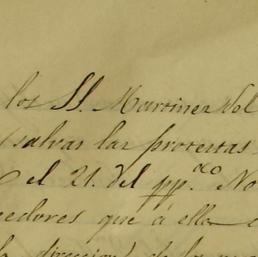 los SS. Martinez del
salvas las protestas
el 21. del pp.do No
eedores que á ella